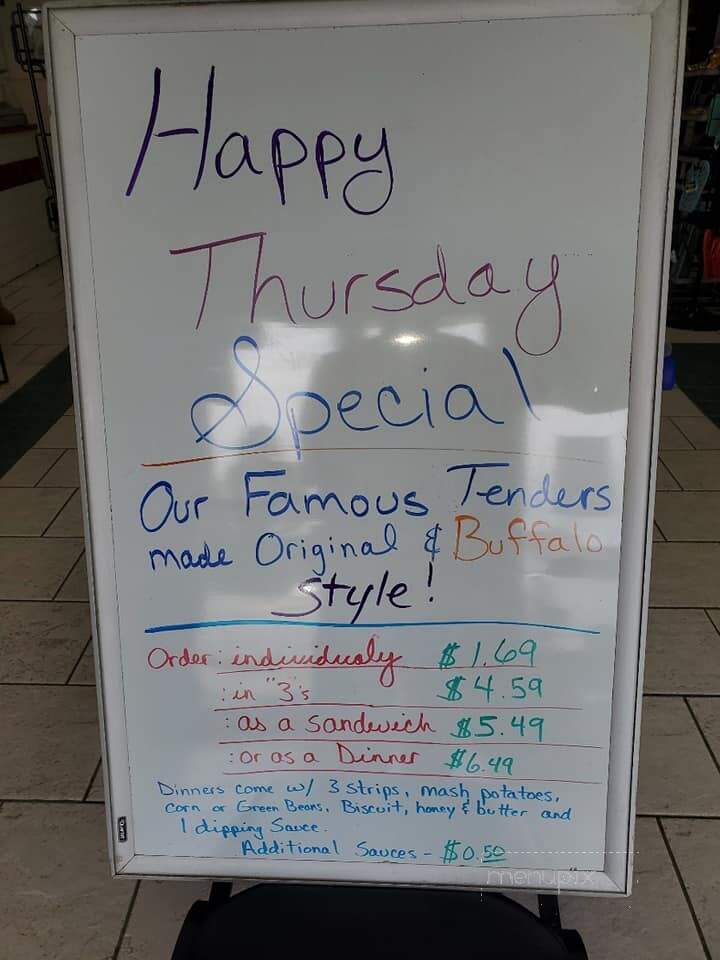 Happy
Thursday
Special
Our Famous Tenders
made Original & Buffalo
Style!
Order: individualy $1.69
: in "3's $4.59
: as a sandwich $5.49
: or as a Dinner $6.49
Dinners come w/ 3 strips, mash potatoes,
corn or Green Beans, Biscuit, honey & butter and
1 dipping Sauce.
Additional Sauces - $0.50
menupix